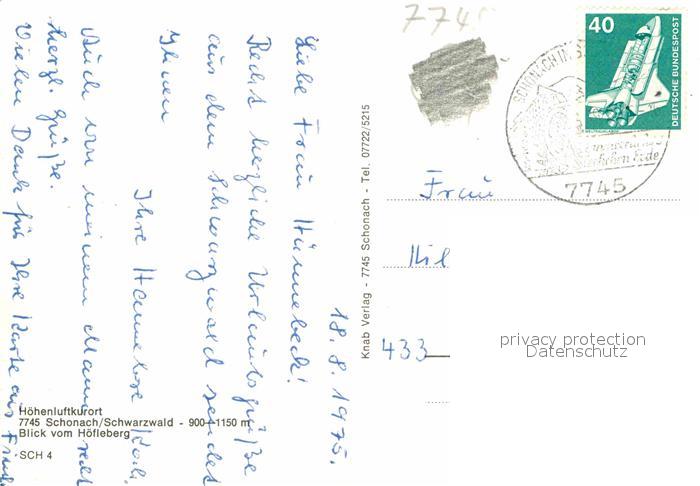 18. 8. 1975.
Liebe Frau Hünnebeck!
Recht herzliche Urlaubsgrüße
aus dem Schwarzwald sendet
Ihnen
Ihre Hannelore
Auch von meinem Mann recht
herzl. Grüße.
Vielen Dank für Ihre Karte aus
Höhenluftkurort
7745 Schonach/Schwarzwald - 900-1150 m
Blick vom Höfleberg
SCH 4
Knab Verlag - 7745 Schonach - Tel. 07722/5215
7745
40
DEUTSCHE BUNDESPOST
SCHONACH IM
7745
Frau
433
privacy protection
Datenschutz